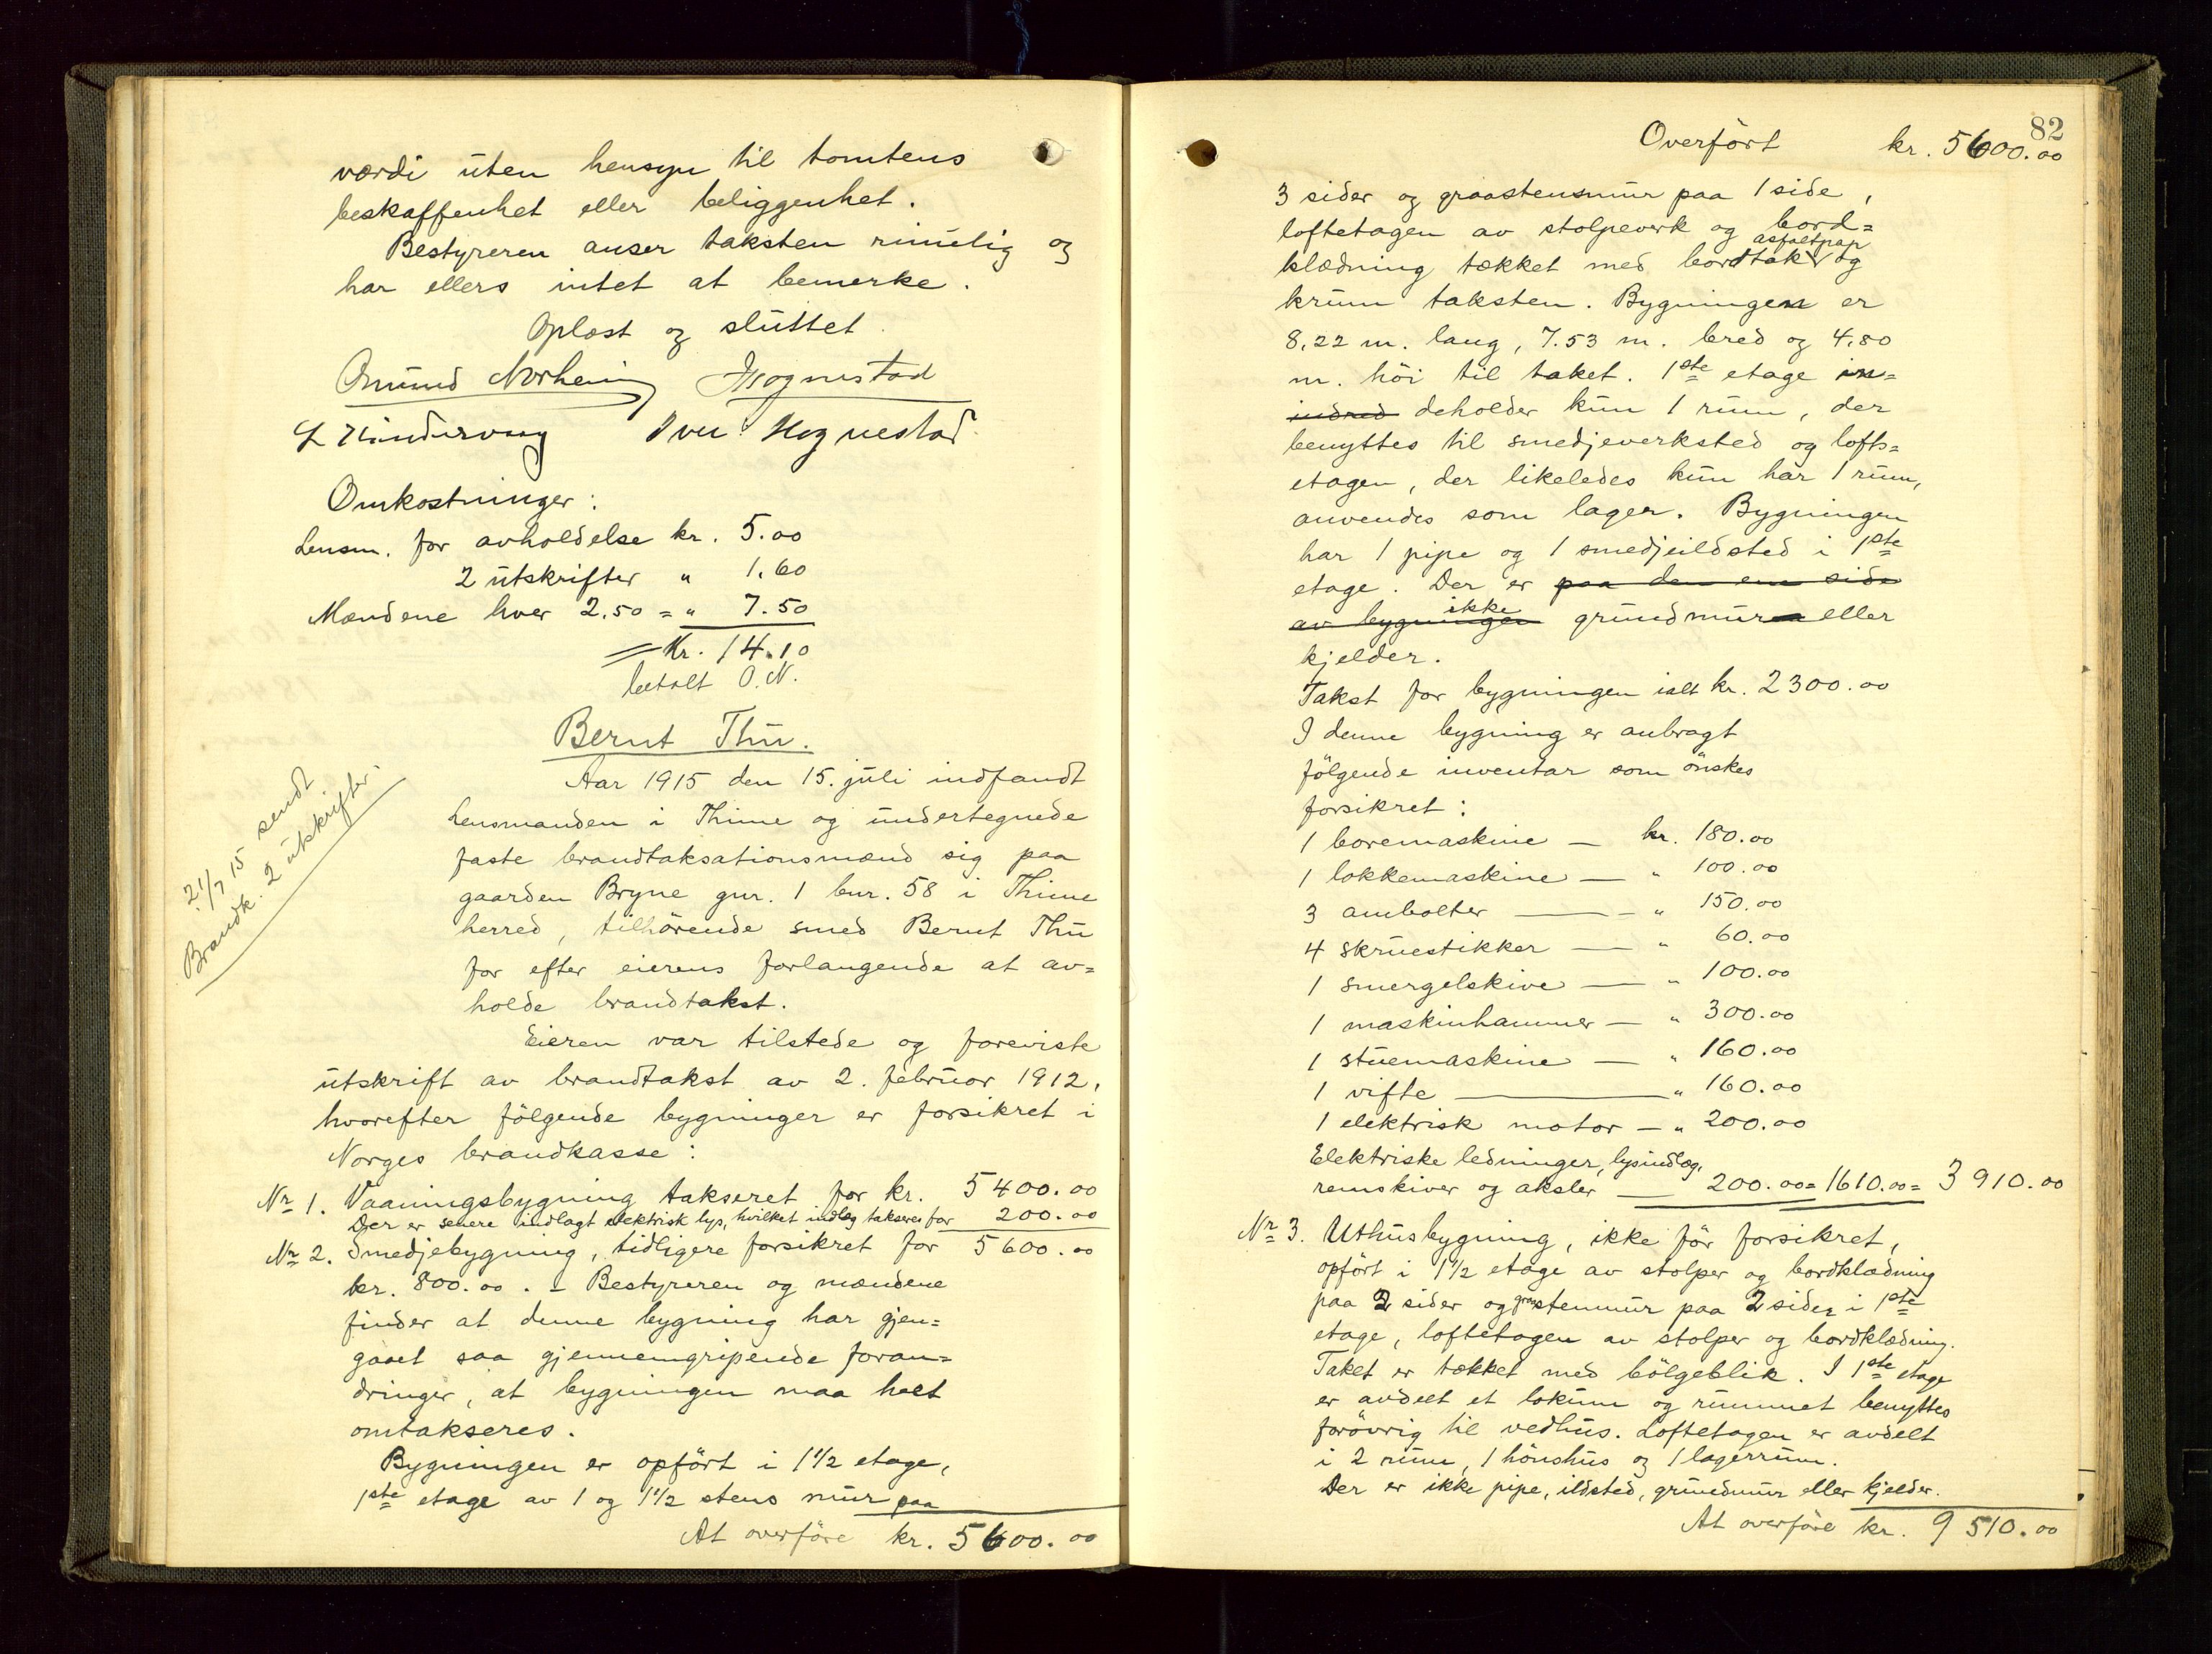 værdi uten hensyn til tomtens
beskaffenhet eller beliggenhet.
Bestyreren anser taksten rimelig og
har ellers intet at bemerke.
Oplæst og sluttet.
Omund Norheim Hognestad
Iver Hognestad
Omkostninger:
Lensm. for avholdelse kr. 5.00
2 utskrifter " 1.60
Mændene hver 2.50 = " 7.50
= Kr. 14.10
betalt O.N.
Bernt Thu.
21/7 15 sendt
Brandk. 2 utskrifter.
Aar 1915 den 15. juli indfandt
Lensmanden i Thime og undertegnede
faste brandtaksationsmænd sig paa
gaarden Bryne gnr. 1 bnr. 58 i Thime
herred, tilhörende smed Bernt Thu
for efter eierens forlangende at av=
holde brandtakst.
Eieren var tilstede og foreviste
utskrift av brandtakst av 2. februar 1912,
hvorefter fölgende bygninger er forsikret i
Norges brandkasse:
Nr 1. Vaaningsbygning takseret for kr. 5400.00
Der er senere indlagt elektrisk lys, hvilket indlæg takseres for 200.00
Nr 2. Smedjebygning, tidligere forsikret for 5600.00
kr. 800.00. - Bestyreren og mændene
finder at denne bygning har gjen=
gaaet saa gjennemgripende foran=
dringer, at bygningen maa helt
omtakseres.
Bygningen er opfört i 1 1/2 etage,
1ste etage av 1 og 1 1/2 stens mur paa
At overföre kr. 5600.00
82
Overfört kr. 5600.00
3 sider og graastensmur paa 1 side,
loftetagen av stolpeverk og bord=
klædning tækket med bordtak asfaltpap og
krum taksten. Bygningen er
8,22 m. lang, 7.53 m. bred og 4,80
m. höi til taket. 1ste etage in=
indred deholder kun 1 rum, der
benyttes til smedjeverksted og lofts=
etagen, der likeledes kun har 1 rum,
anvendes som lager. Bygningen
har 1 pipe og 1 smedjeildsted i 1ste
etage. Der er paa den ene side
av bygningen ikke grundmur eller
kjelder.
Takst for bygningen ialt kr. 2300.00
I denne bygning er anbragt
fölgende inventar som önskes
forsikret:
1 boremaskine — kr. 180.00
1 lokkemaskine — " 100.00
3 ambolter — " 150.00
4 skruestikker — " 60.00
1 smergelskive — " 100.00
1 maskinhammer — " 300.00
1 stuemaskine — " 160.00
1 vifte — " 160.00
1 elektrisk motor — " 200.00
Elektriske ledninger, lysindlæg,
remskiver og aksler — 200.00 = 1610.00 = 3910.00
Nr 3. Uthusbygning, ikke för forsikret,
opfört i 1 1/2 etage av stolper og bordklædning
paa 2 sider og graastenmur paa 2 sider i 1ste
etage, loftetagen av stolper og bordklædning.
Taket er tækket med bölgeblik. I 1ste etage
er avdelt et lokum og rummet benyttes
forövrig til vedhus. Loftetagen er avdelt
i 2 rum, 1 hönshus og 1 lagerrum.
Der er ikke pipe, ildsted, grundmur eller kjelder.
At overföre kr. 9510.00